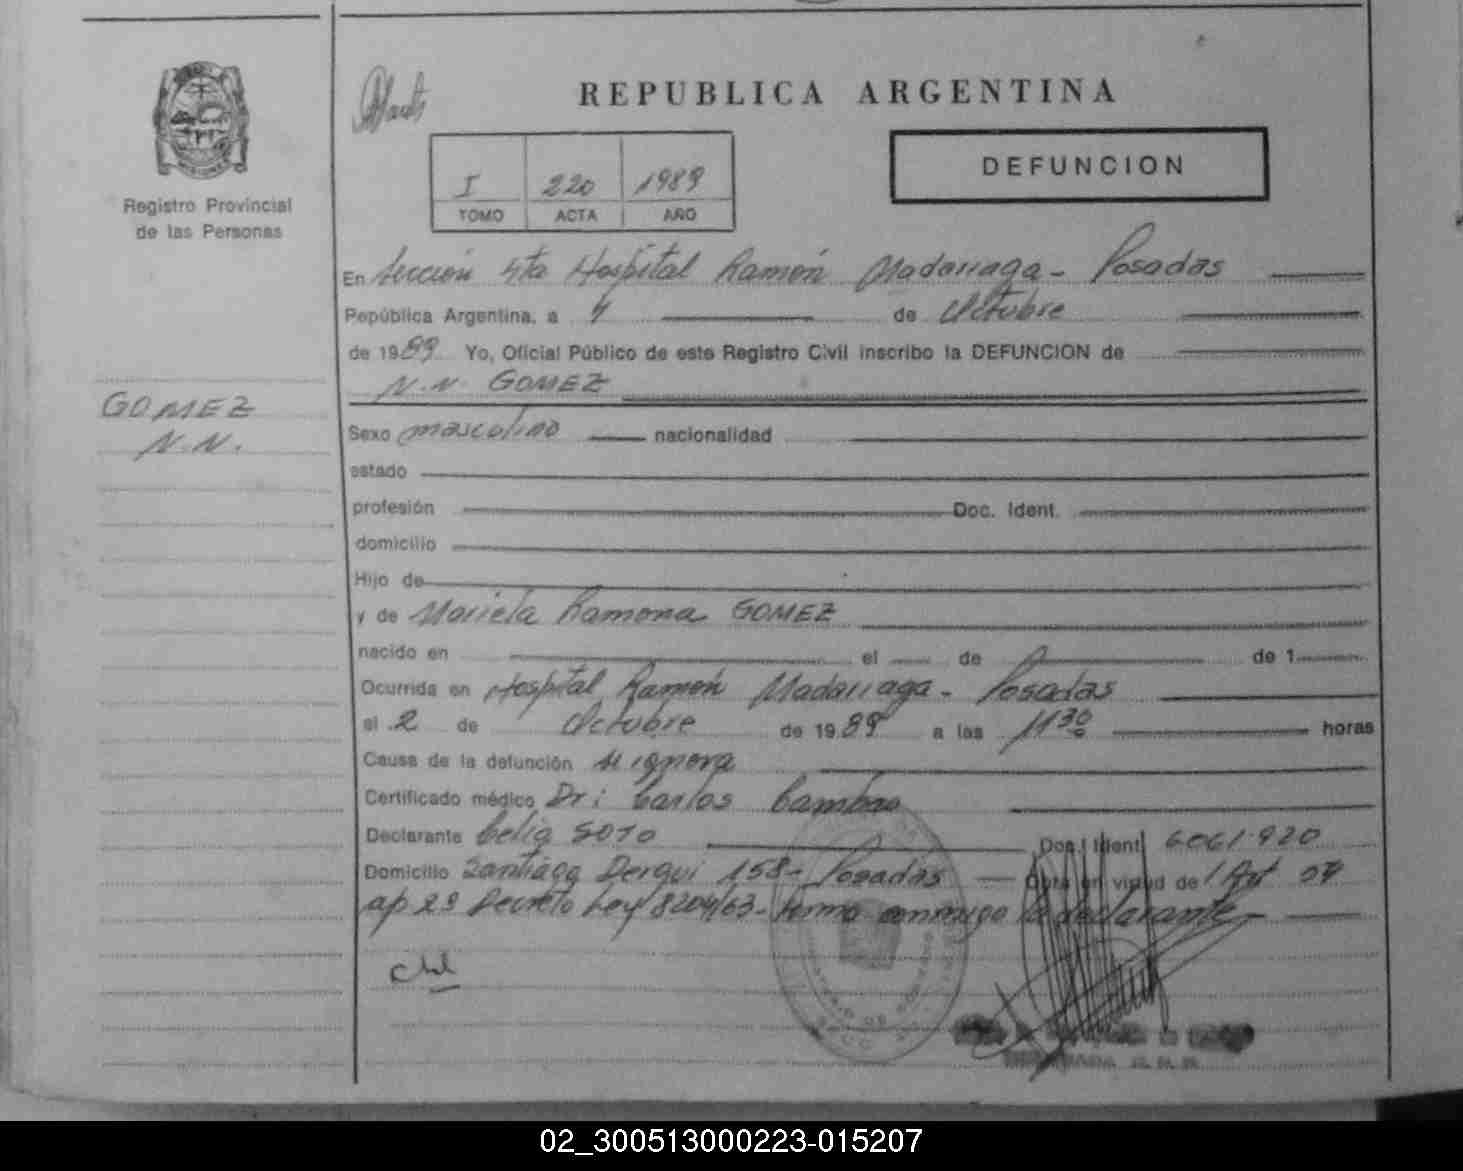 REPUBLICA ARGENTINA
MISIONES
Registro Provincial
de las Personas
I 220 1989
TOMO ACTA AÑO
DEFUNCION
En Sección 5ta Hospital Ramón Madariaga - Posadas
República Argentina, a 4 de Octubre
de 1989 Yo, Oficial Público de este Registro Civil inscribo la DEFUNCION de
N.N. GOMEZ
GOMEZ
N.N.
Sexo masculino nacionalidad
estado
profesión Doc. Ident.
domicilio
Hijo de
y de Mariela Ramona GOMEZ
nacido en el de de 1
Ocurrida en Hospital Ramón Madariaga - Posadas
el 2 de Octubre de 1989 a las 11 30 horas
Causa de la defunción se ignora
Certificado médico Dr: Carlos
Declarante Celia SOTO Doc. Ident. 6061920
Domicilio Santiago Derqui 158 - Posadas Obra en virtud de
ap 29 Decreto Ley 8204/63 - firma conmigo la declarante
02_300513000223-015207